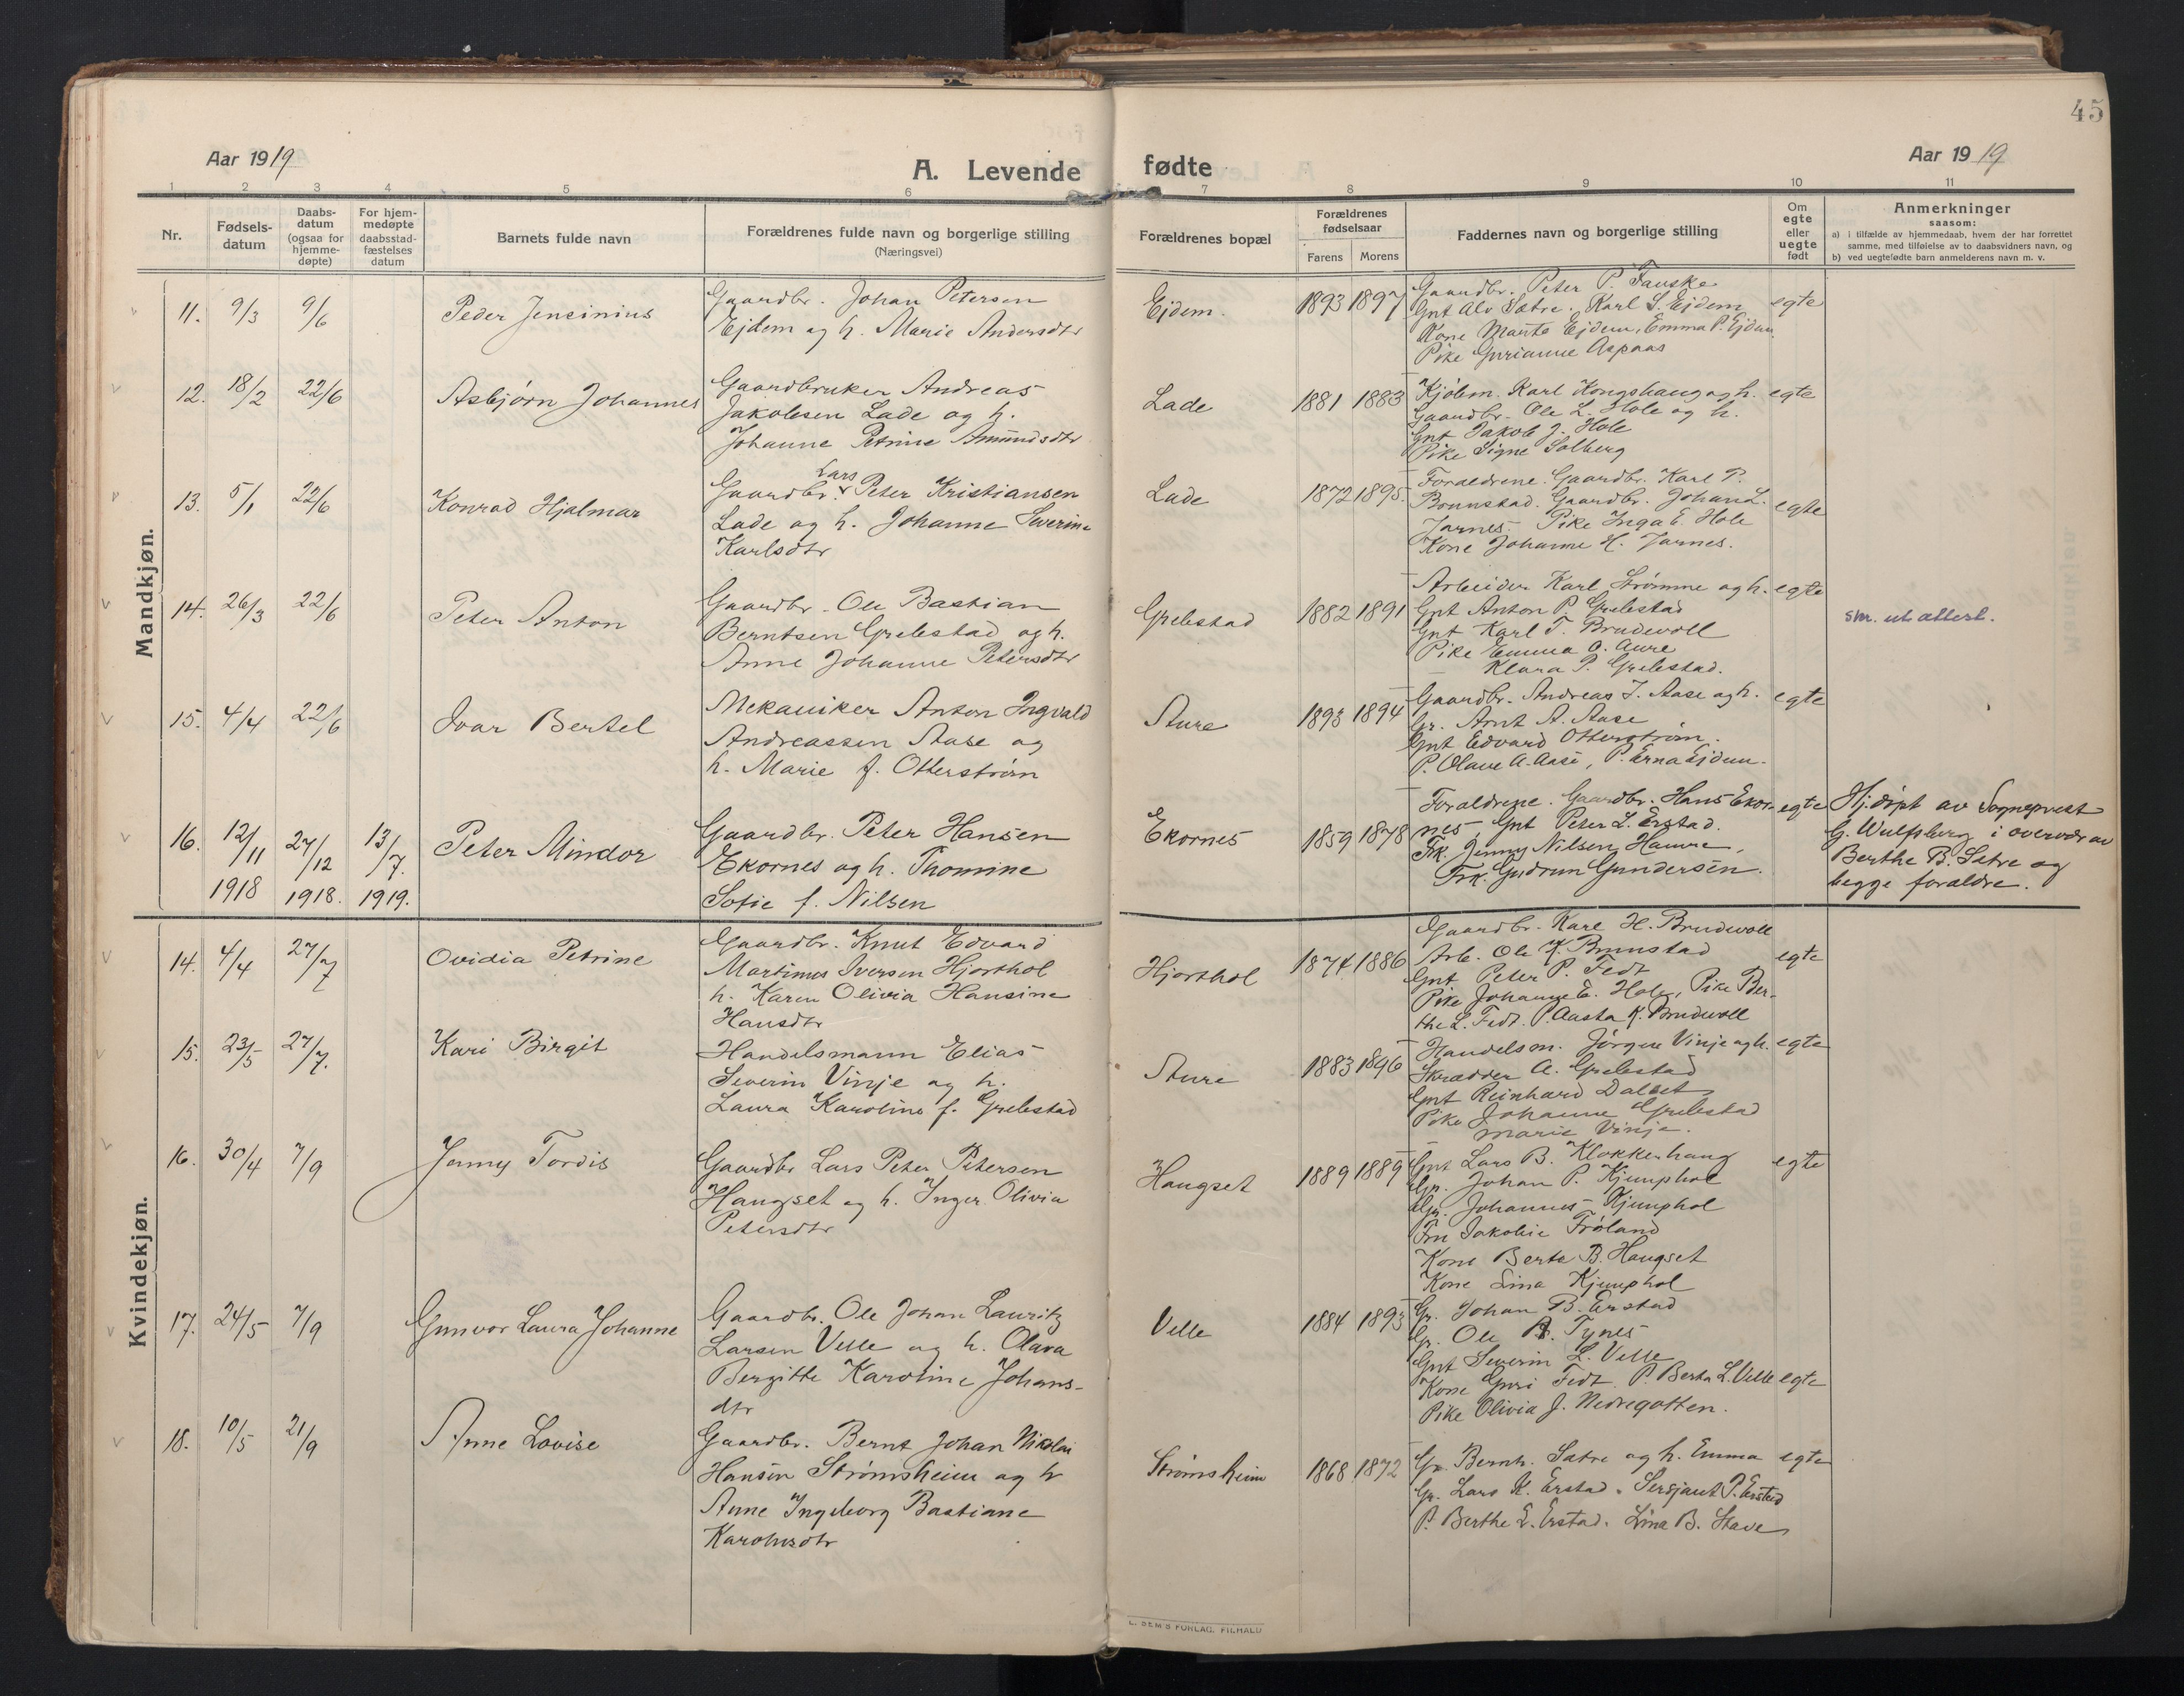 45
Aar 1919
A. Levende fødte
Aar 1919
1 2 3 4 5 6 7 8 9 10 11
Nr.
Fødsels-
datum
Daabs-
datum
(ogsaa for
hjemme-
døpte)
For hjem-
medøpte
daabsstad-
fæstelses
datum
Barnets fulde navn
Forældrenes fulde navn og borgerlige stilling
(Næringsvei)
Forældrenes bopæl
Forældrenes
fødselsaar
Farens Morens
Faddernes navn og borgerlige stilling
Om
egte
eller
uegte
født
Anmerkninger
saasom:
a) i tilfælde av hjemmedaab, hvem der har forrettet
samme, med tilføielse av to daabsvidners navn, og
b) ved uegtefødte barn anmelderens navn m. v.
Mandkjøn.
11. 9/3 9/6 Peder Jensinius
Gaardbr. Johan Petersen
Ejdem og h. Marie Andersdtr
Ejdem. 1893 1897
Gaardbr. Peter P. Fauske
Gnt Alv Sætre. Karl S. Ejdem
Kone Marite Ejdem, Emma P. Ejdem.
Pike Gurianne Aspaas
egte
12. 18/2 22/6 Asbjørn Johannes
Gaardbruker Andreas
Jakobsen Lade og h.
Johanne Petrine Amundsdtr
Lade 1881 1883
Kjøbm. Karl Kongshaug og h.
Gaardbr. Ole L. Hole og h.
Gnt Jakob J. Hole
Pike Signe Solberg
egte
13. 5/1 22/6 Konrad Hjalmar
Lars
Gaardbr. Peter Kristiansen
Lade og h. Johanne Severine
Karlsdtr
Lade 1872 1895.
Forældrene. Gaardbr. Karl P.
Brunstad. Gaardbr. Johan L.
Jarnes. Pike Inga E. Hole
Kone Johanne H. Jarnes.
egte
14. 26/3 22/6 Peter Anton
Gaardbr. Ole Bastian
Berntsen Grebstad og h.
Anne Johanne Petersdtr
Grebstad 1882 1891
Arbeider Karl Strømme og h.
Gnt Anton P. Grebstad
Gnt Karl T. Brudevoll
Pike Emma O. Aure
— Klara P. Grebstad.
egte
sm. ut attest.
15. 4/4 22/6 Ivar Bertel
Mekaniker Anton Ingvald
Andreassen Aase og
h. Marie f. Otterstrøm
Aure 1893 1894
Gaardbr. Andreas J. Aase og h.
Gr. Arnt A. Aase
Gnt Edvard Otterstrøm.
P. Olave A. Aase, P. Erna Ejdem.
egte
16. 12/11 1918 27/12 1918. 13/7. 1919. Peter Mindor
Gaardbr. Peter Hansen
Ekornes og h. Thomine
Sofie f. Nilsen
Ekornes 1859 1878
Forældrene. Gaardbr. Hans Ekor-
nes, Gnt Peter L. Erstad.
Frk. Jenny Nilsen Hamre,
Frk. Gudrun Gundersen.
egte
Hj.døpt av Sogneprest
G. Wulfsberg i overvær av
Berthe B. Sætre og
begge forældre.
Kvindekjøn.
14. 4/4 27/7 Ovidia Petrine
Gaardbr. Knut Edvard
Martinus Iversen Hjorthol
h. Karen Olivia Hansine
Hansdtr
Hjorthol 1874 1886
Gaardbr. Karl H. Brudevoll
Arb. Ole K. Brunstad
Gnt Peter P. Fedt
Pike Johanne E. Hole, Pike Ber-
the L. Fedt. P. Aasta K. Brudevoll
egte
15. 23/5 27/7. Kari Birgit
Handelsmann Elias
Severin Vinje og h.
Laura Karoline f. Grebstad
Aure 1883 1896
Handelsm. Jørgen Vinje og h.
Skrædder A. Grebstad
Gnt Reinhard Dalset
Pike Johanne Grebstad
Marie Vinje.
egte
16. 30/4 7/9 Jenny Tordis
Gaardbr Lars Peter Petersen
Haugset og h. Inger Olivia
Petersdtr
Haugset 1889 1889
Gnt Lars B. Klokkerhaug
Gr. Johan P. Kjemphol
Gr. Johannes Kjemphol
Fru Jakobie Frøland
Kone Berte B. Haugset
Kone Lina Kjemphol
egte
17. 24/5 7/9 Gunvor Laura Johanne
Gaardbr. Ole Johan Lauritz
Larsen Velle og h. Olava
Bergitte Karoline Johans-
dtr
Velle 1884 1893
Gr. Johan B. Erstad
Gr. Ole B. Tynes
Gnt Severin L. Velle
Kone Guri Fedt. P. Berta L. Velle
Pike Olivia J. Nedregotten.
egte
18. 10/5 21/9 Anne Lovise
Gaardbr. Bernt Johan Nikolai
Hansen Strømsheim og h
Anne Ingeborg Bastiane
Karolusdtr
Strømsheim 1868 1872
Gr. Bernh. Sætre og h. Emma
Gr. Lars K. Erstad. Sersjant P. Erstad
P. Berthe E. Erstad. Lina B. Stave
egte
L. SEM'S FORLAG, F.HALD